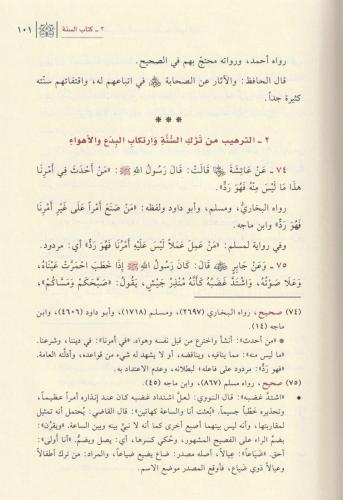 ٢ - كتاب السنة ١٠١
رواه أحمد، ورواته محتجّ بهم في الصحيح.
قال الحافظ: والآثار عن الصحابة ﵃ في اتباعهم له، واقتفائهم سنّته
كثيرة جداً.
***
٢ - الترهيب من تَرْكِ السُّنَّةِ وَارتكابِ البِدَعِ والأهواءِ
٧٤ - عَنْ عَائِشَةَ ﵂ قَالَتْ: قَالَ رَسُولُ اللهِ ﷺ: «مَنْ أَحْدَثَ فِي أَمْرِنَا
هَذَا مَا لَيْسَ مِنْهُ فَهُوَ رَدٌّ».
رواه البخاريُّ، ومسلم، وأبو داود ولفظه: «مَنْ صَنَعَ أَمْراً عَلَى غَيْرِ أَمْرِنَا
فَهُوَ رَدٌّ» وابن ماجه.
وفي رواية لمسلم: «مَنْ عَمِلَ عَمَلاً لَيْسَ عَلَيْهِ أَمْرُنَا فَهُوَ رَدٌّ» أي: مردود.
٧٥ - وَعَنْ جَابِرٍ ﵁ قَالَ: كَانَ رَسُولُ اللهِ ﷺ إِذَا خَطَبَ احْمَرَّتْ عَيْنَاهُ،
وَعَلَا صَوْتُهُ، وَاشْتَدَّ غَضَبُهُ كَأَنَّهُ مُنْذِرُ جَيْشٍ، يَقُولُ: «صَبَّحَكُمْ وَمَسَّاكُمْ»،
(٧٤) صحيح، رواه البخاري (٢٦٩٧)، ومسلم (١٧١٨)، وأبو داود (٤٦٠٦)، وابن
ماجه (١٤).
• «من أحدث»: أنشأ واخترع من قبل نفسه وهواه. «في أمرنا»: في ديننا، وشرعنا.
«ما ليس منه»: مما ينافيه، ويناقضه، أو لا يشهد له شيء من قواعده، وأدلّته العامة.
«فهو ردٌّ»: مردود على فاعله؛ لبطلانه، وعدم الاعتداد به.
(٧٥) صحيح، رواه مسلم (٨٦٧)، وابن ماجه (٤٥).
• «اشتدّ غضبه»: قال النوويّ: لعلّ اشتداد غضبه كان عند إنذاره أمراً عظيماً،
وتحذيره خَطْباً جسيماً. «بُعثت أنا والساعة كهاتين»: قال القاضي: يُحتمل أنه تمثيل
لمقاربتها، وأنه ليس بينهما أصبع أخرى كما أنه لا نبيّ بينه وبين الساعة. «ويقرُن»:
بضمّ الراء على الفصيح المشهور، وحُكي كسرها، أي: يصل ويضمّ. «أنا أولى»:
أحق. «ضَيَاعاً»: عيالاً، أصله مصدر: ضاع يضيع ضياعاً، والمراد: من ترك أطفالاً
وعيالاً ذوي ضَيَاع، فأوقع المصدر موضع الاسم.